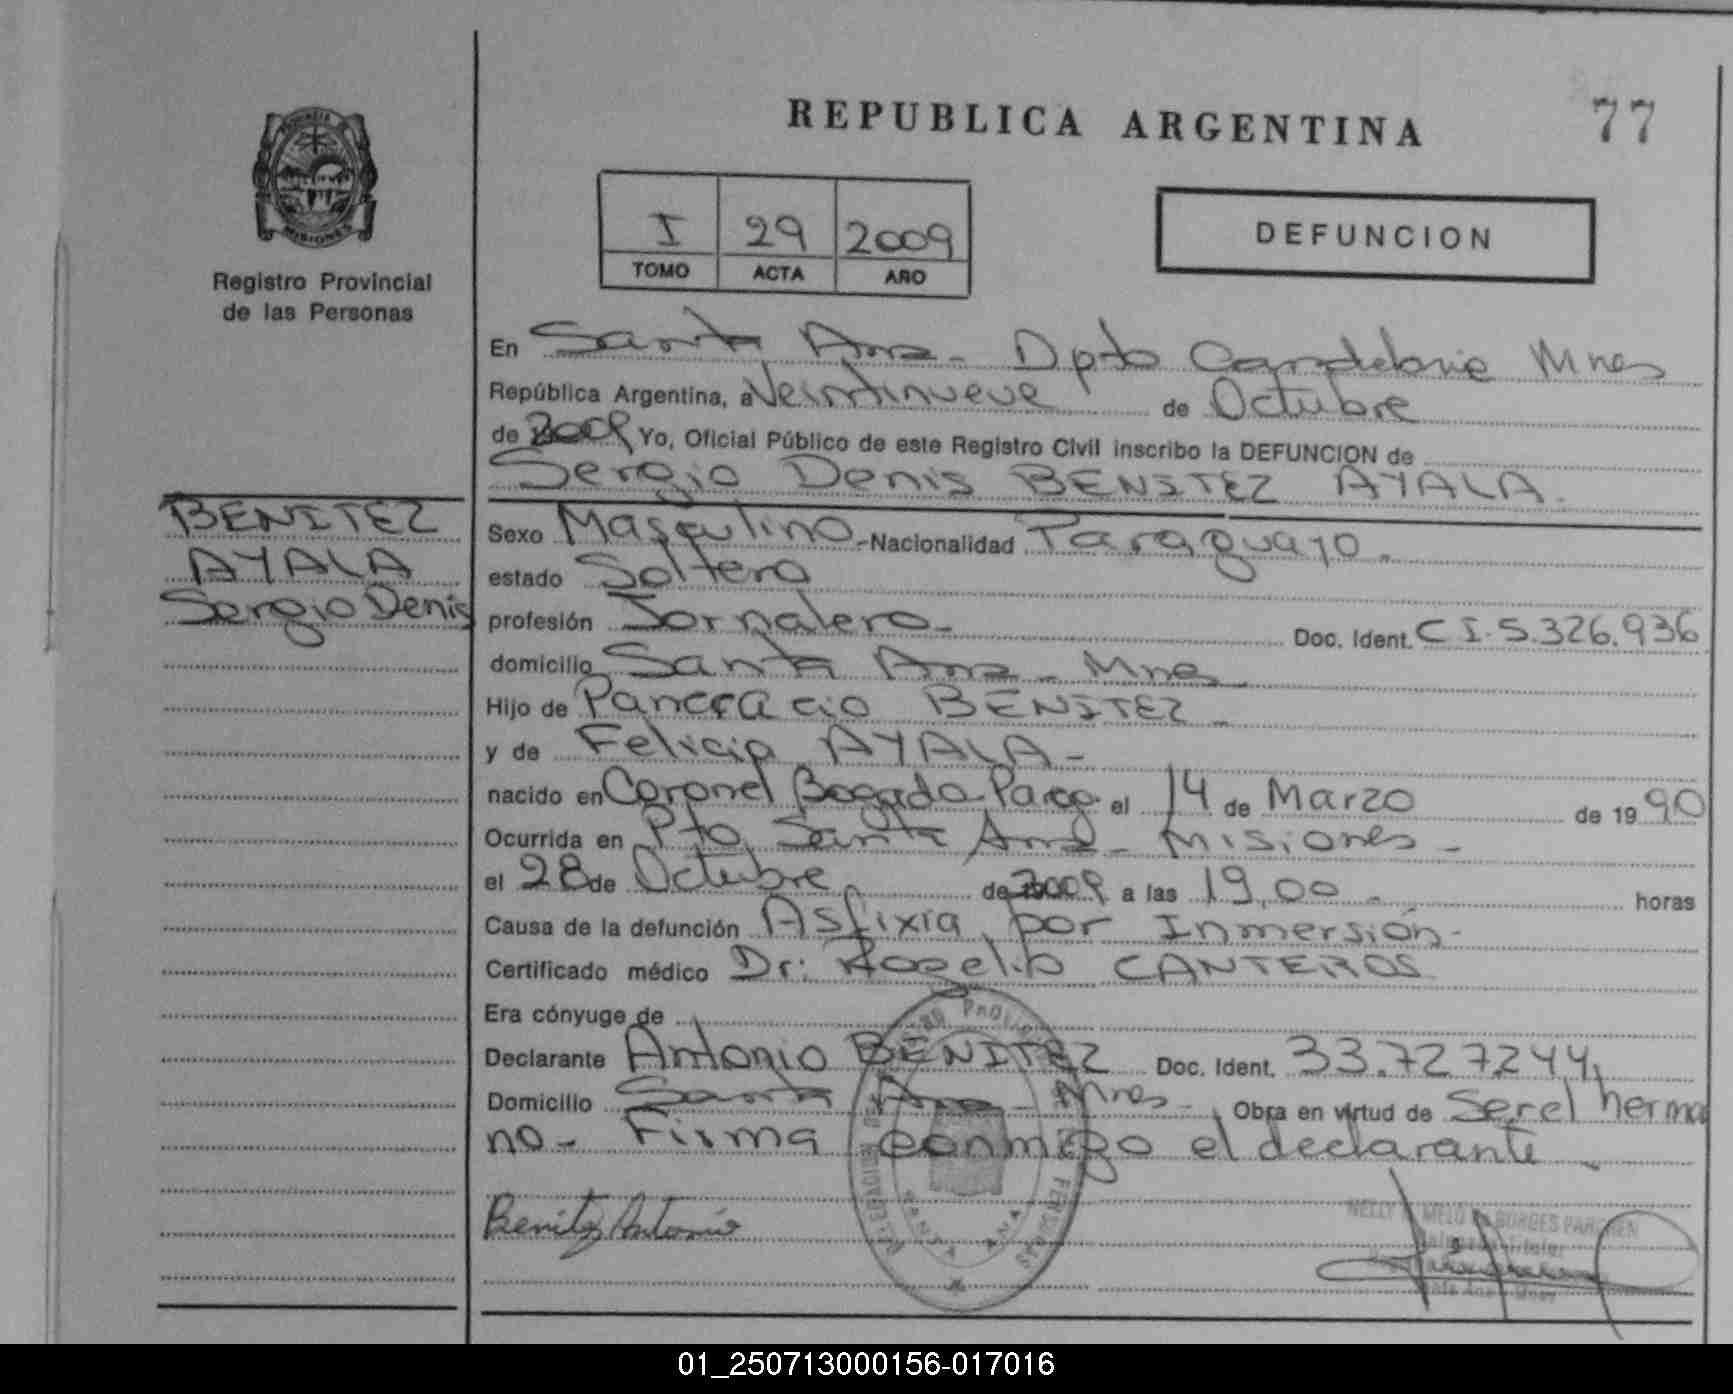 REPUBLICA ARGENTINA
77
MISIONES
Registro Provincial
de las Personas
I 29 2009
TOMO ACTA AÑO
DEFUNCION
En Santa Ana - Dpto Candelaria Mnes
República Argentina, a Veintinueve de Octubre
de 2009 Yo, Oficial Público de este Registro Civil inscribo la DEFUNCION de
Sergio Denis BENITEZ AYALA.
BENITEZ
AYALA
Sergio Denis
Sexo Masculino - Nacionalidad Paraguayo.
estado Soltero
profesión Jornalero - Doc. Ident. C I. 5.326.936
domicilio Santa Ana - Mnes
Hijo de Pancracio BENITEZ -
y de Felicia AYALA -
nacido en Coronel Bogado Pargo. el 14 de Marzo de 1990
Ocurrida en Pto Santa Ana - Misiones -
el 28 de Octubre de 2009 a las 19,00 - horas
Causa de la defunción Asfixia por Inmersión -
Certificado médico Dr: Rogelio CANTEROS
Era cónyuge de
Declarante Antonio BENITEZ Doc. Ident. 33.727.244,
Domicilio Santa Ana - Mnes - Obra en virtud de Ser el herma
no - Firma conmigo el declarante -
Benitez Antonio
SANTA ANA
PERSONAS
NELLY MELO BORGES
Titular
Santa Ana - Mnes
01_250713000156-017016